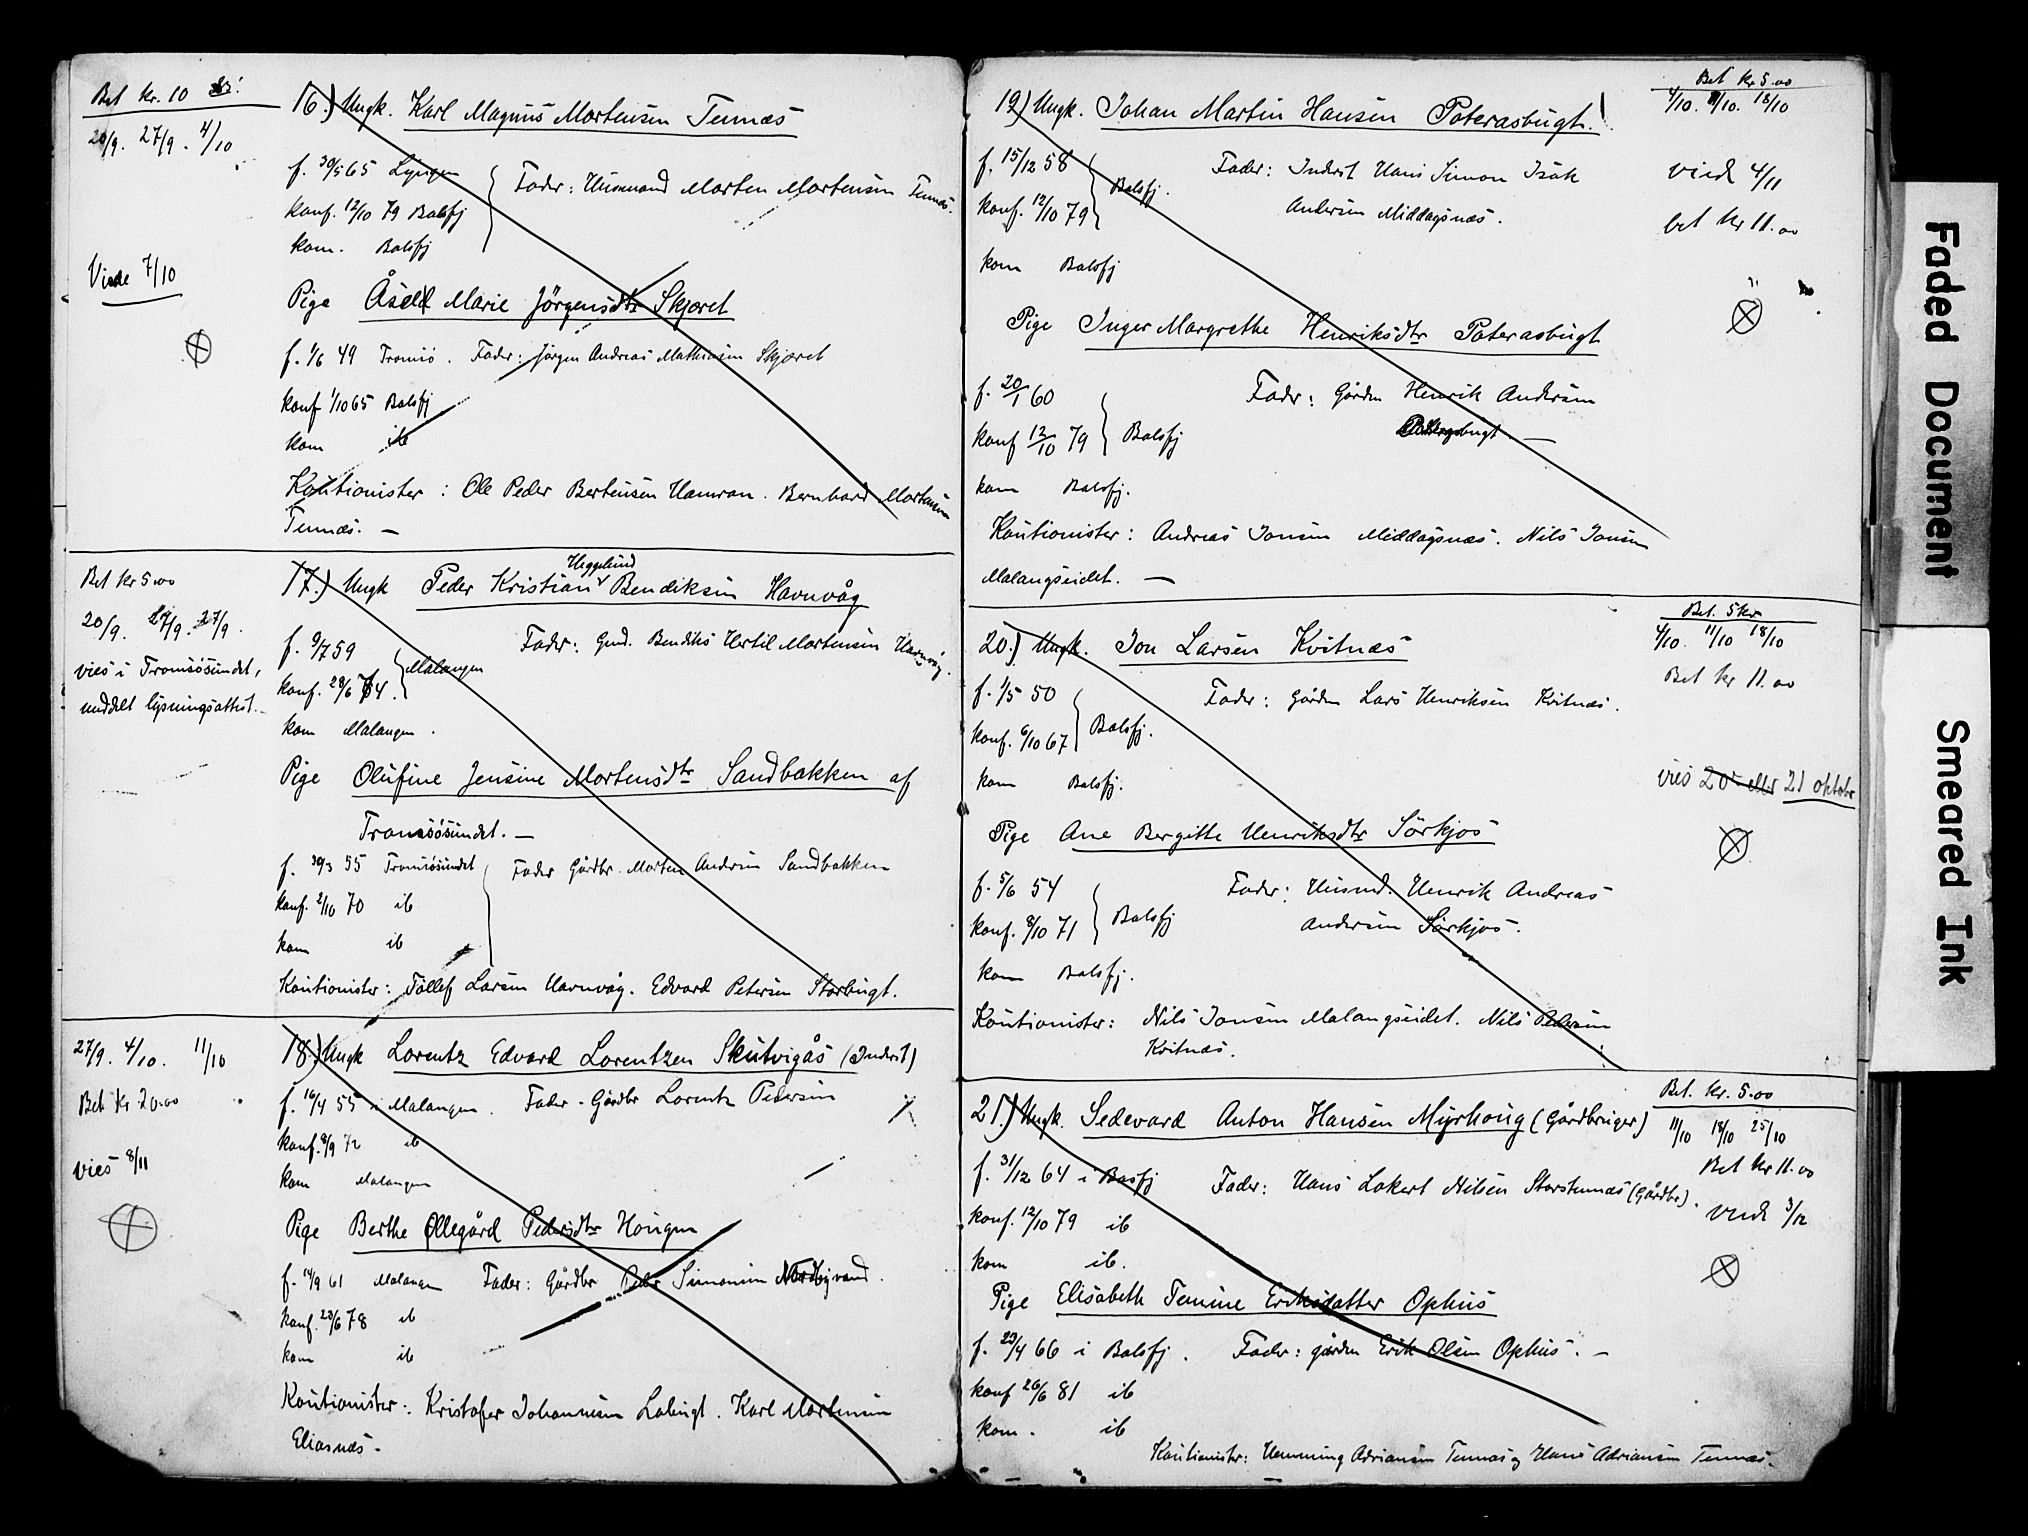 Bet kr. 10
20/9. 27/9. 4/10
Viede 7/10
16.) Ungk. Karl Magnus Mortensen Tennæs
f. 30/5 65 Lyngen
konf. 12/10 79 Balsfj
kom. Balsfj
Fader: Husmand Morten Mortensen Tennæs.
Pige Åseld Marie Jörgensdtr Skjæret
f. 1/6 49 Tromsö. Fader: Jörgen Andreas Mathiesen Skjæret
konf 1/10 65 Balsfj
kom ib
Kautionister: Ole Peder Bertensen Hamran. Bernhard Mortensen
Tennæs. —
Bet kr 5.00
20/9. 27/9. 27/9.
vies i Tromsösundet,
meddelt lysningsattest.
Heggelund
17.) Ungk Peder Kristian Bendiksen Havnvåg
f. 9/7 59
konf. 28/6 74.
Malangen
kom Malangen.
Fader: Gmd. Bendiks Hertil Mortensen Havnvåg.
Pige Olufine Jensine Mortensdtr Sandbakken af
Tromsösundet. —
f. 30/3 55 Tromsösundet
konf. 2/10 70 ib
kom ib
Fader Gårdbr. Morten Andersen Sandbakken
Kautionister: Tollef Larsen Havnvåg. Edvard Petersen Storbugt.
27/9. 4/10. 11/10
Bet kr 20.00
vies 8/11
18.) Ungk Lorentz Edvard Lorentzen Skutvigås (Inderst)
f. 16/4 55 i Malangen. Fader - Gårdbr Lorentz Pedersen
konf. 8/9 72 ib
kom Malangen
Pige Berthe Ollegård Pedersdtr Hougen
f. 14/9 61 Malangen Fader: Gårdbr Peder Simonsen Nordbyvand.
konf. 23/6 78 ib
kom ib
Kautionister: Kristofer Johannesen Labugt. Karl Mortensen
Eliasnæs.
Bet kr 5.00
4/10. 11/10. 18/10
19.) Ungk. Johan Martin Hansen Paterasbugt.
f. 15/12 58
konf. 12/10 79
Balsfj.
kom Balsfj
Fader: Inderst Hans Simon Isak
Andersen Middagsnæs.
viede 4/11
bet kr 11.00
Pige Inger Margrethe Henriksdtr Paterasbugt
f. 20/1 60
konf 12/10 79
Balsfj
kom Balsfj.
Fader: Gårdm Henrik Andersen
Kautionister: Andreas Jonsen Middagsnæs. Nils Jonsen
Malangseidet. —
Bet. 5 kr
4/10. 11/10 18/10
Bet kr 11.00
20.) Ungk. Jon Larsen Kvitnæs
f. 1/5 50
konf. 6/10 67
Balsfj.
kom Balsfj.
Fader: Gårdm Lars Henriksen Kvitnæs.
vies 20de eller 21 oktober
Pige Ane Bergitte Henriksdtr Sörkjos
f. 5/6 54
konf. 8/10 71
Balsfj
kom Balsfj.
Fader: Husmd. Henrik Andreas
Andersen Sörkjos.
Kautionister: Nils Jonsen Malangseidet. Nils Pedersen
Kvitnæs.
Bet. kr. 5.00
11/10 18/10 25/10
Bet kr 11.00
viede 3/12
21.) Ungk. Sedevard Anton Hansen Myrhoug (Gårdbruger)
f. 31/12 64 i Balsfj Fader: Hans Lakert Nilsen Storstennæs (Gårdbr).
konf. 12/10 79 ib
kom ib.
Pige Elisabeth Temine Eriksdatter Ophus
f. 23/4 66 i Balsfj. Fader: gårdm Erik Olsen Ophus. —
konf 26/6 81 ib
kom. ib
Kautionister: Hemming Adriansen Tennæs og Hans Adriansen Tennæs.
Faded Document
Smeared Ink